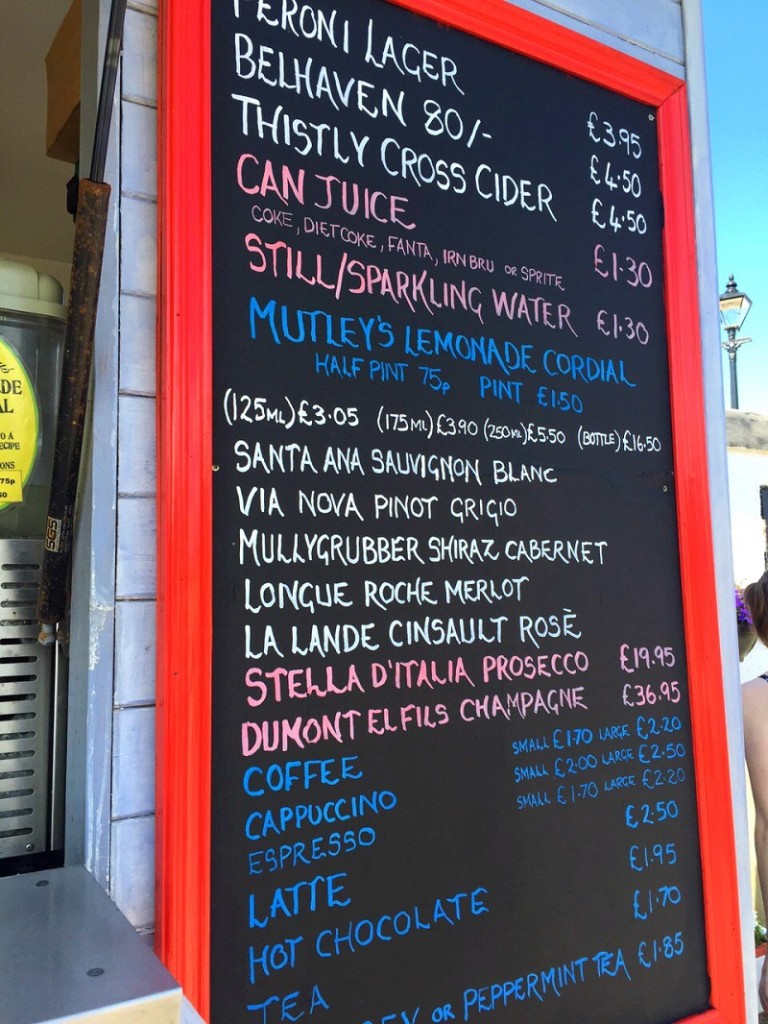 PERONI LAGER £3.95
BELHAVEN 80/- £4.50
THISTLY CROSS CIDER £4.50
CAN JUICE £1.30
COKE, DIET COKE, FANTA, IRN BRU OR SPRITE
STILL/SPARKLING WATER £1.30
MUTLEY'S LEMONADE CORDIAL
HALF PINT 75p PINT £1.50
(125ML) £3.05 (175ML) £3.90 (250ML) £5.50 (BOTTLE) £16.50
SANTA ANA SAUVIGNON BLANC
VIA NOVA PINOT GRIGIO
MULLYGRUBBER SHIRAZ CABERNET
LONGUE ROCHE MERLOT
LA LANDE CINSAULT ROSÈ
STELLA D'ITALIA PROSECCO £19.95
DUMONT EL FILS CHAMPAGNE £36.95
COFFEE SMALL £1.70 LARGE £2.20
CAPPUCCINO SMALL £2.00 LARGE £2.50
ESPRESSO SMALL £1.70 LARGE £2.20
LATTE £2.50
HOT CHOCOLATE £1.95
TEA £1.70
OR PEPPERMINT TEA £1.85
75p
SGS